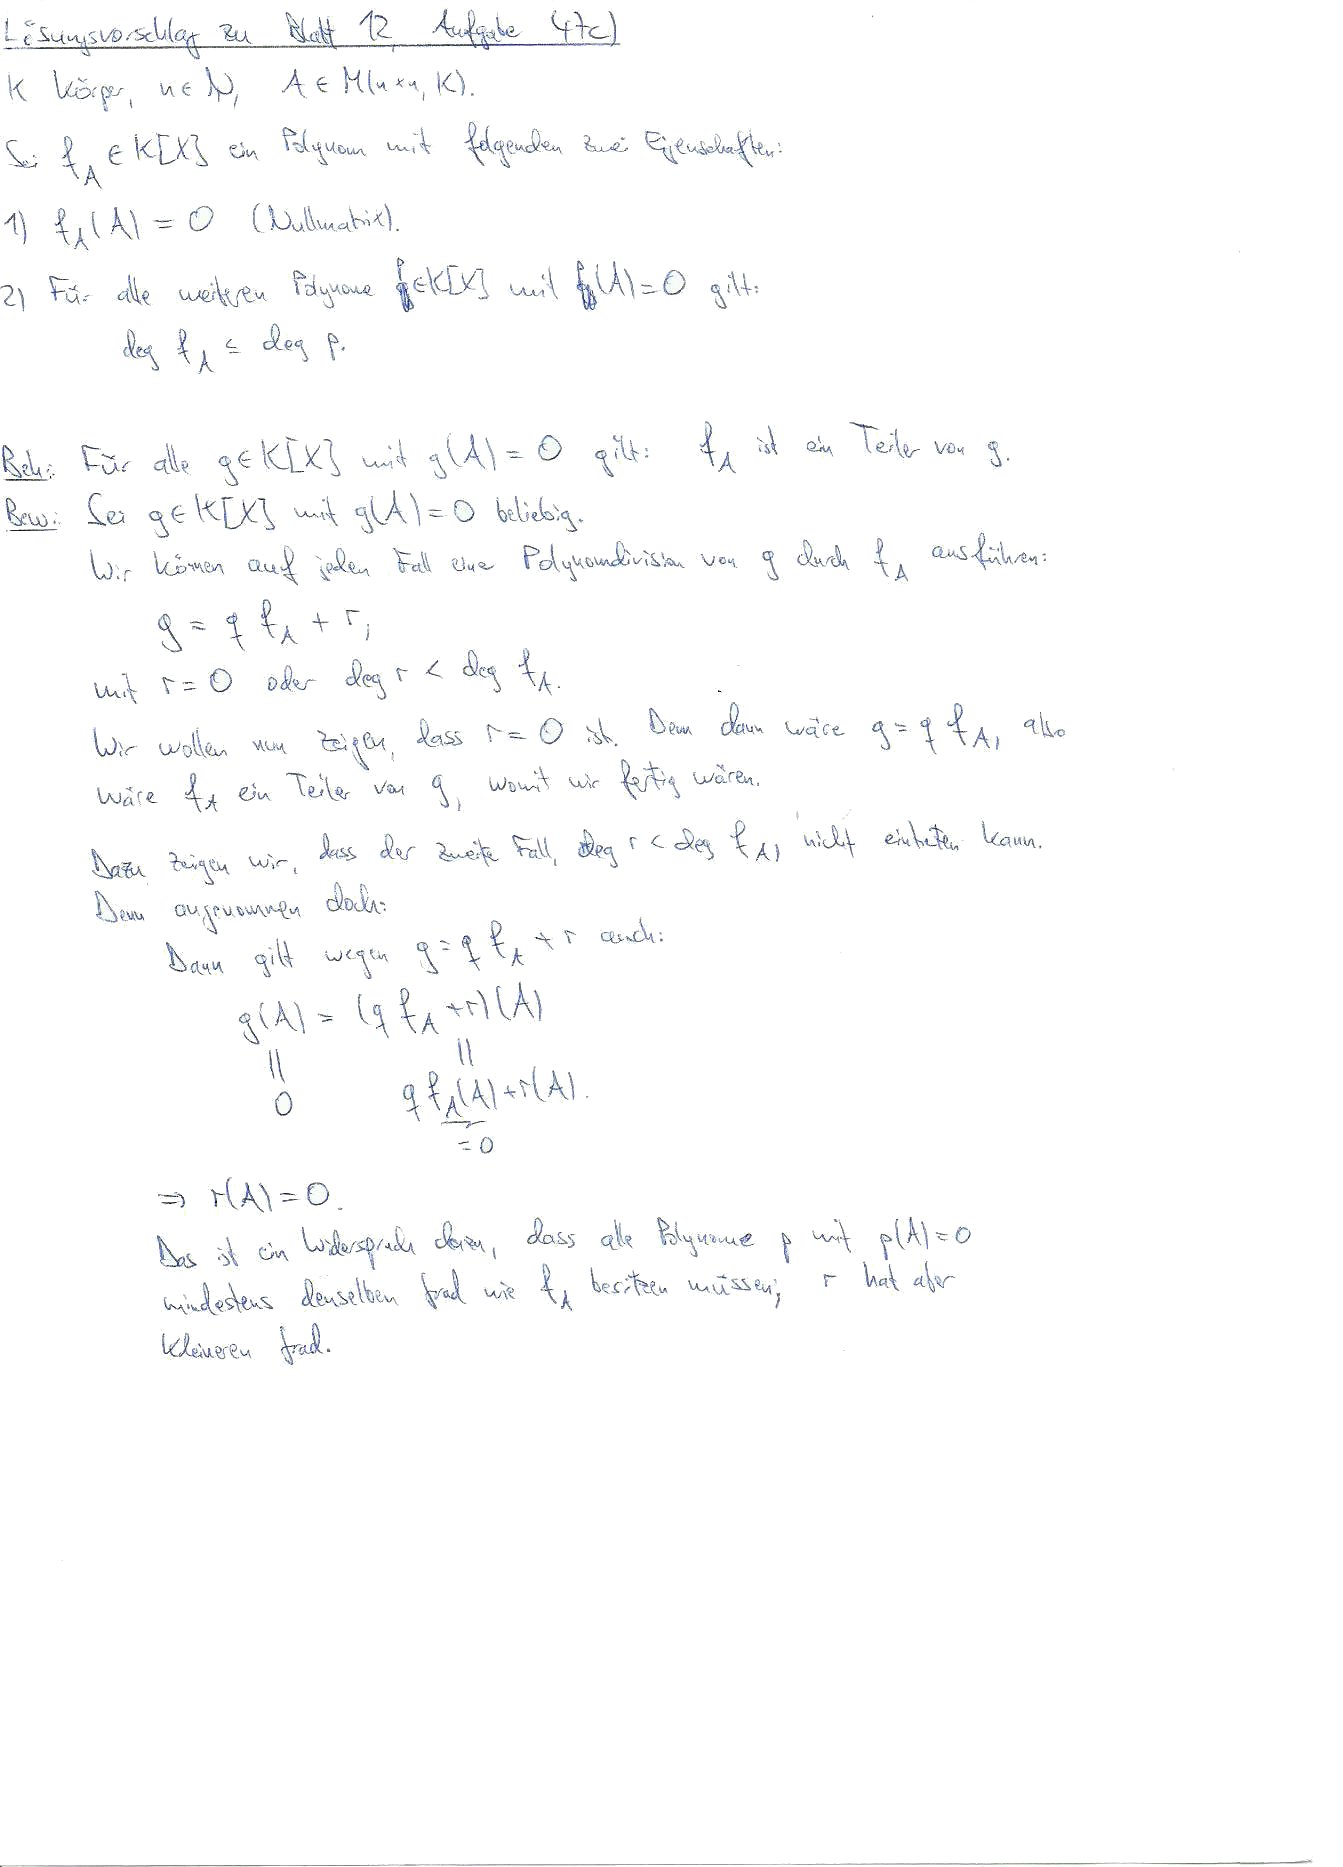 Lösungsvorschlag zu Blatt 12, Aufgabe 47c)
K Körper, n ∈ ℕ, A ∈ M(n×n, K).
Sei f_A ∈ K[X] ein Polynom mit folgenden zwei Eigenschaften:
1) f_A(A) = 0 (Nullmatrix).
2) Für alle weiteren Polynome p ∈ K[X] mit p(A) = 0 gilt:
deg f_A ≤ deg p.
Beh.: Für alle g ∈ K[X] mit g(A) = 0 gilt: f_A ist ein Teiler von g.
Bew.: Sei g ∈ K[X] mit g(A) = 0 beliebig.
Wir können auf jeden Fall eine Polynomdivision von g durch f_A ausführen:
g = q f_A + r,
mit r = 0 oder deg r < deg f_A.
Wir wollen nun zeigen, dass r = 0 ist. Denn dann wäre g = q f_A, also
wäre f_A ein Teiler von g, womit wir fertig wären.
Dazu zeigen wir, dass der zweite Fall, deg r < deg f_A, nicht eintreten kann.
Denn angenommen doch:
Dann gilt wegen g = q f_A + r auch:
g(A) = (q f_A + r)(A)
|| ||
0 q f_A(A) + r(A).
= 0
⇒ r(A) = 0.
Das ist ein Widerspruch daran, dass alle Polynome p mit p(A) = 0
mindestens denselben Grad wie f_A besitzen müssen; r hat aber
kleineren Grad.